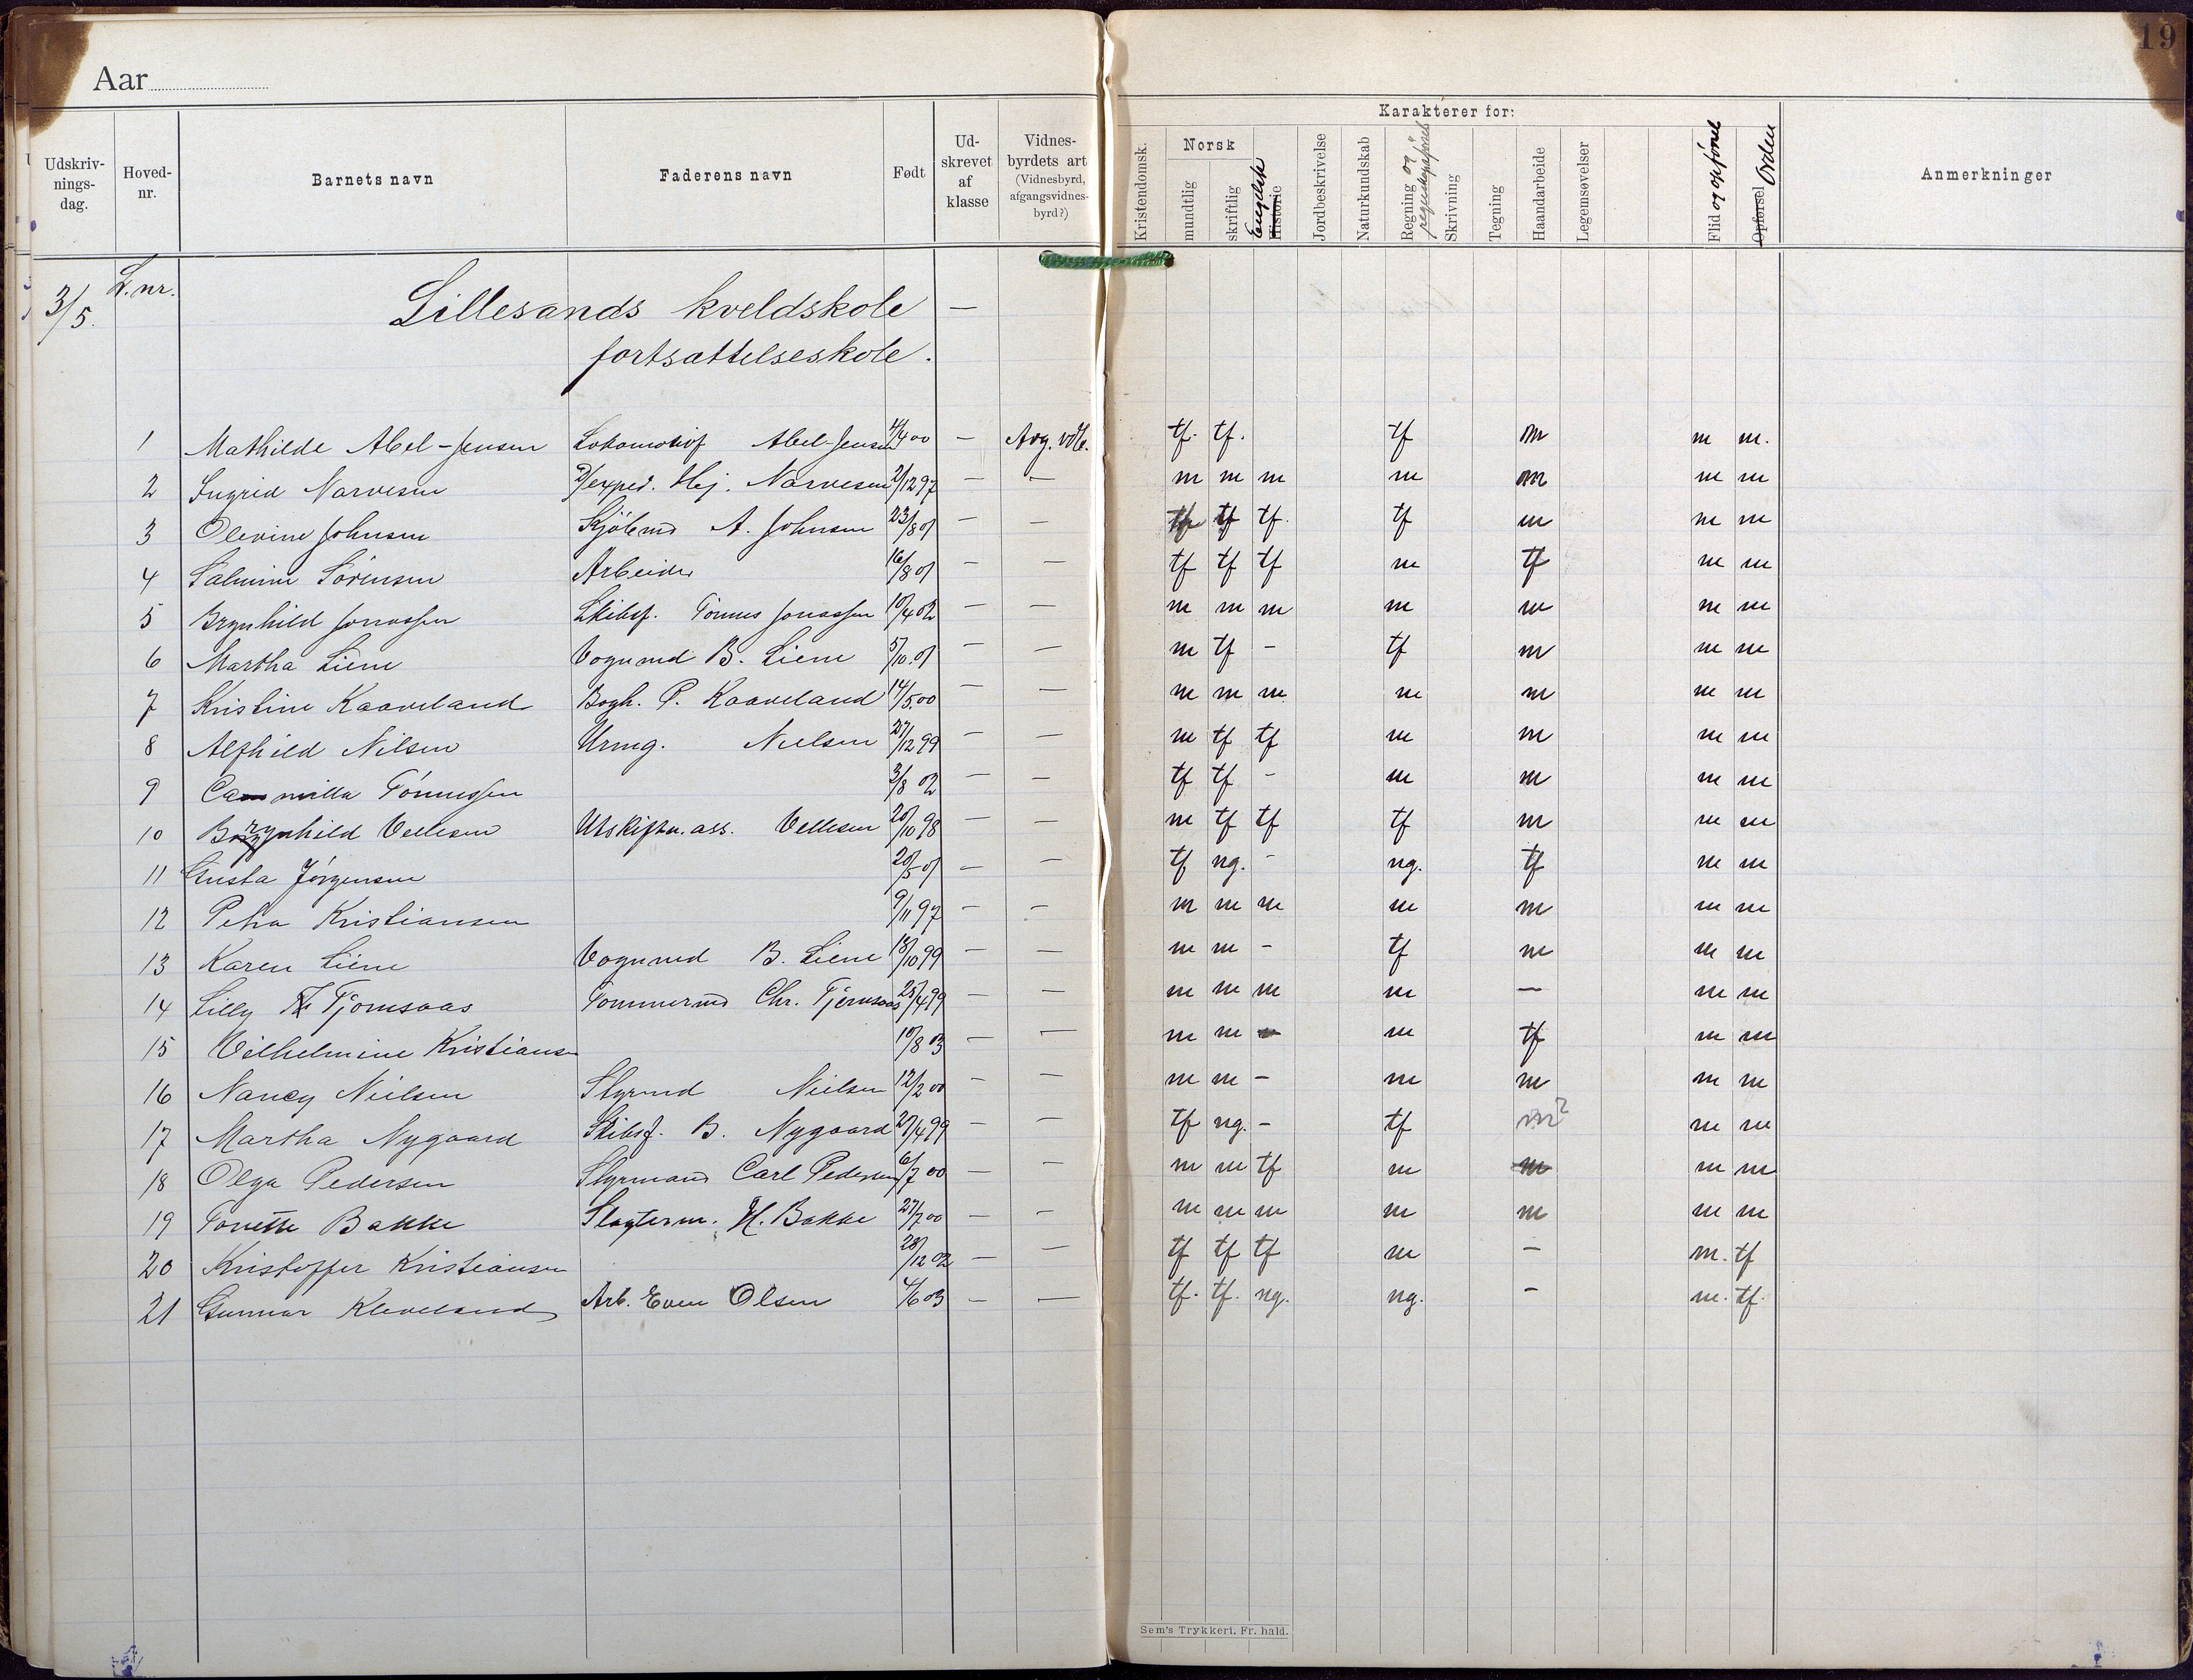 19
Aar
Karakterer for:
Udskriv-nings-dag. Hoved-nr. Barnets navn Faderens navn Født Ud-skrevet af klasse Vidnes-byrdets art (Vidnesbyrd, afgangsvidnes-byrd?) Kristendomsk. Norsk mundtlig skriftlig Historie Engelsk Jordbeskrivelse Naturkundskab Regning og Skrivning Tegning Haandarbeide Legemsøvelser Flid og opførsel Opførsel Orden Anmerkninger
3/5. L.nr. Lillesands kveldskole —
fortsættelseskole.
1 Mathilde Abel-Jensen Lokomotivf Abel-Jensen /4 00 — Avg. vdb. tf. tf. tf m m m.
2 Ingrid Narvesen exped. Hj. Narvesen 2/12 97 — — m m m m m m m
3 Olevine Johnsen Sjöbmd A. Johnsen 23/8 01 — — tf tf tf. tf m m m
4 Salmine Sörensen Arbeider 16/8 01 — — tf tf tf m tf m m
5 Brynhild Jonassen Skibsf. Tönnes Jonassen 10/4 02 — — m m m m m m m
6 Martha Liene Vognmd B. Liene 5/10.01 — — m tf – tf m m m
7 Kristine Kaaveland Bogh. P. Kaaveland 14/5.00 — — m m m m m m m
8 Alfhild Nilsen Urmg. Nielsen 27/12 99 — — m tf tf m m m m
9 Camilla Tönnessen 3/8 02 — — tf tf – m m m m
10 Brynhild Vellesen Utskiftn. ass. Vellesen 20/10 98 — — m tf tf tf m m m
11 Gusta Jörgensen 20/5 01 — — tf ng. – ng. tf m m
12 Petra Kristiansen 9/11 97 — — m m m m m m m
13 Karen Liene Vognmd B. Liene 18/10 99 — — m m – tf m m m
14 Lilly Tjomsaas Tömmermd Chr. Tjomsaas 25/4 99 — — m m m m — m m
15 Vilhelmine Kristiansen 10/8 03 — — m m – m tf m m
16 Nancy Nielsen Styrmd Nielsen 12/2 00 — — m m – m m m m
17 Martha Nygaard Skibsf. B. Nygaard 20/4 99 — — tf ng. – tf m? m m
18 Olga Pedersen Styrmand Carl Pedersen 6/7 00 — — m m tf m m m m
19 Tonette Bakke Slagterm. H. Bakke 27/7 00 — – m m m m m m m
20 Kristoffer Kristiansen 28/12 02 — — tf tf tf m – m. tf
21 Gunnar Kleveland Arb. Even Olsen 4/6 03 — — tf. tf. ng. ng. – m. tf.
Sem's Trykkeri, Fr. hald.